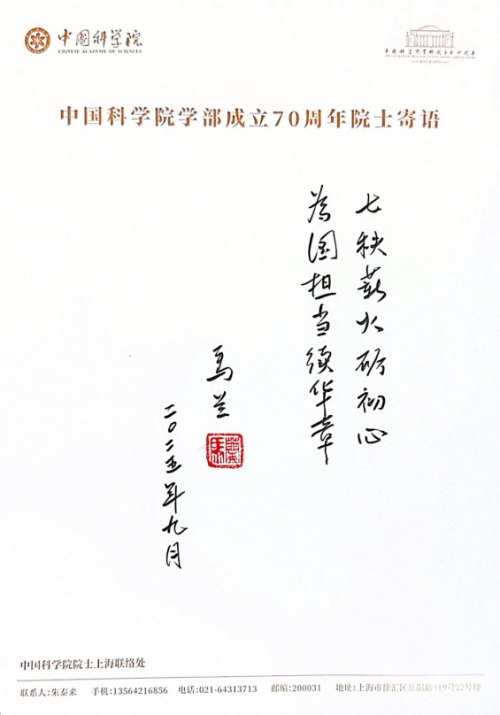 中国科学院
CHINESE ACADEMY OF SCIENCES
中国科学院学部成立70周年院士寄语
七秩薪火砺初心
为国担当续华章
马兰
二〇二五年九月
中国科学院院士上海联络处
联系人:朱泰来 手机:13564216856 电话:021-64313713 邮编:200031 地址:上海市徐汇区岳阳路319号27号楼